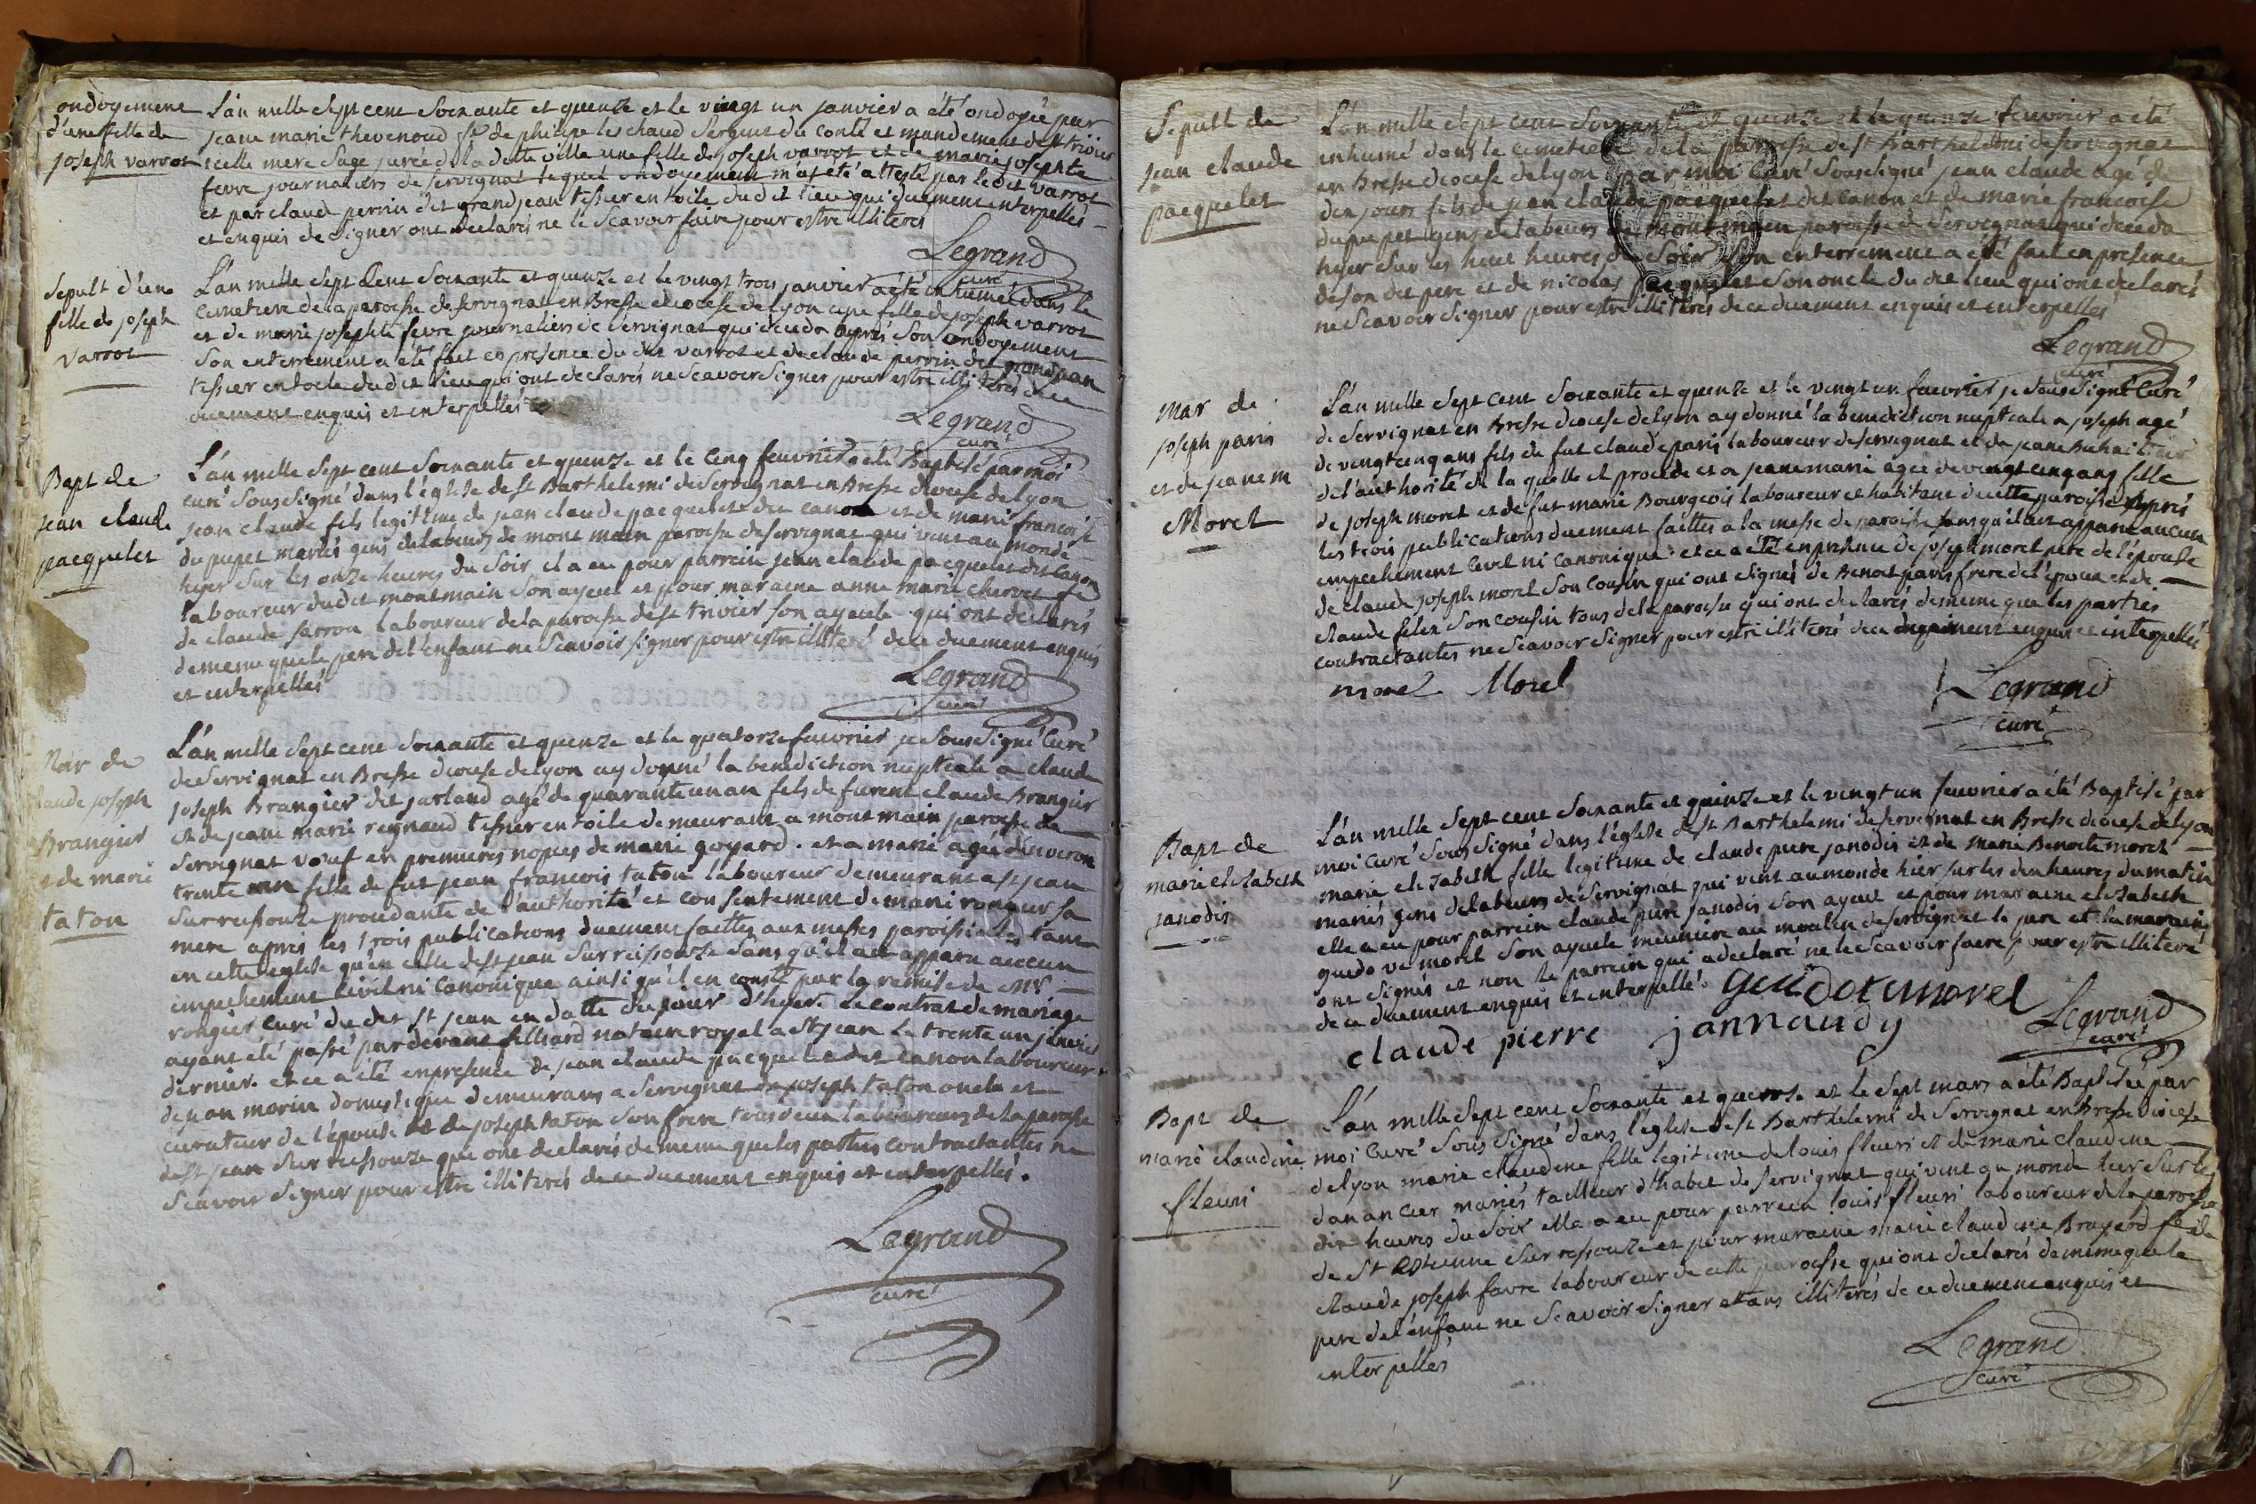 ondoyement
d'une fille de
joseph varrot
L'an mille sept cent soixante et quinze et le vingt un janvier a été ondoyée par
jeane marie thevenoud fe de phlippe les chaud sergent du conté et mandement de st trivier
icelle mere sage jurée de la ditte ville une fille de joseph varrot et de marie josephte
fevre journaliers de servignat lequel ondoyement m'a été attesté par le dit varrot
et par claude perrin dit grand jean tissier en toile du dit lieu qui duement interpellés
et enquis de signer ont declarés ne le scavoir faire pour estre illiterés
Legrand
curé
sepult d'une
fille de joseph
varrot
L'an mille sept cent soixante et quinze et le vingt trois janvier a été inhumée dans le
cimetiere de la paroisse de servignat en Bresse diocese de lyon une fille de joseph varrot
et de marie josephte fevre journaliers de servignat qui deceda après son ondoyement
son enterrement a été fait en presence du dit varrot et de claude perrin dit grand jean
tissier en toile du dit lieu qui ont declarés ne scavoir signer pour estre illiterés de ce
duement enquis et interpellés
Legrand
curé
Bapt de
jean claude
pacquelet
L'an mille sept cent soixante et quinze et le cinq feuvrier a été Baptisé par moi
curé soussigné dans l'eglise de st Barthelemi de Servignat en Bresse diocese de lyon
jean claude fils legitime de jean claude pacquelet dit canon et de marie francoise
du pupet mariés gens de labeurs de mont main paroisse de servignat qui vint au monde
hyer sur les onze heures du soir il a eu pour parrein jean claude pacquelet dit canon
laboureur du dit montmain son ayeul et pour maraine anne marie chervet fe
de claude sarron laboureur de la paroisse de st trivier son ayeule qui ont declarés
de meme que le pere de l'enfant ne scavoir signer pour estre illiterés de ce duement enquis
et interpellés
Legrand
curé
Mar de
claude joseph
Brangier
et de marie
taton
L'an mille sept cent soixante et quinze et le quatorze feuvrier je soussigné curé
de Servignat en Bresse diocese de lyon ay donné la benediction nuptiale a claude
joseph Brangier dit jarland agé de quarante un an fils de furent claude Brangier
et de jeane marie reynaud tissier en toile demeurant a mont main paroisse de
servignat veuf en premieres nopces de marie goyard. et a marie agée d'environ
trente un fille de fut jean francois taton laboureur demeurant a st jean
sur reissouze procedante de l'authorité et consentement de marie rongier sa
mere après les trois publications duement faittes aux messes paroissiales tant
en cette eglise qu'en celle de st jean sur reissouze sans qu'il ait apparu aucun
impechement civil ni canonique ainsi qu'il en conste par la remise de mr
rongier curé du dit st jean en datte du jour d'hyer. Le contrat de mariage
ayant été passé pardevant filliard notaire royal a st jean le trente un janvier
dernier. et ce a été en presence de jean claude pacquelet dit canon laboureur
de jean morin domestique demeurans a Servignat de joseph taton oncle et
curateur de l'épouse et de joseph taton son frere tous deux laboureurs de la paroisse
de st jean sur reissouze qui ont declarés de meme que les parties contractantes ne
scavoir signer pour estre illiterés de ce duement enquis et interpellés.
Legrand
curé
Sepult de
jean claude
pacquelet
L'an mille sept cent soixante et quinze et le quinze feuvrier a été
inhumé dans le cimetiere de la paroisse de st Barthelemi de servignat
en Bresse diocese de lyon par moi curé soussigné jean claude agé de
dix jours fils de jean claude pacquelet dit canon et de marie francoise
du pupet gens de labeurs de mont main paroisse de servignat qui deceda
hyer sur les huit heures du soir son enterrement a été fait en presence
de son dit pere et de nicolas pacquelet son oncle du dit lieu qui ont declarés
ne scavoir signer pour estre illiterés de ce duement enquis et interpellés
Legrand
curé
mar de
joseph paris
et de jeane m
Morel
L'an mille sept cent soixante et quinze et le vingt un feuvrier je soussigné curé
de Servignat en Bresse diocese de lyon ay donné la benediction nuptiale a joseph agé
de vingt cinq ans fils de fut claude paris laboureur de servignat et de jeane
de l'authorité de la quelle il procede et a jeane marie agée de vingt cinq ans fille
de joseph morel et de fut marie Bourgeois laboureur et habitant de cette paroisse après
les trois publications duement faittes a la messe de paroisse sans qu'il ait apparu aucun
impechement civil ni canonique. et ce a été en presence de joseph morel pere de l'épouse
de claude joseph morel son cousin qui ont signés de Benoit paris frere de l'époux et de
claude felix son cousin tous de la paroisse qui ont declarés de meme que les parties
contractantes ne scavoir signer pour estre illiterés de ce duement enquis et interpellés
morel Morel
Legrand
curé
Bapt de
marie elisabeth
janodis
L'an mille sept cent soixante et quinze et le vingt un feuvrier a été Baptisé par
moi curé sous signé dans l'église de st Barthelemi de servignat en Bresse diocese de lyon
marie elisabeth fille legitime de claude piere janodis et de marie Benoite morel
mariés gens de labeurs de servignat qui vint au monde hier sur les dix heures du matin
elle a eu pour parrein claude piere janodis son ayeul et pour maraine elisabeth
guido ve morel son ayeule meuniere au moulin de servignat le pere et la maraine
ont signés et non le parrein qui a declaré ne le scavoir faire pour estre illiteré
de ce duement enquis et interpellé.
guidot morel
claude pierre jannaudy
Legrand
curé
Bapt de
marie claudine
fleuri
L'an mille sept cent soixante et quinze et le sept mars a été Baptisée par
moi curé sous signé dans l'église de st Barthelemi de Servignat en Bresse diocese
de lyon marie claudine fille legitime de louis fleuri et de marie claudine
danancier mariés tailleur d'habit de servignat qui vint au monde hier sur les
dix heures du soir elle a eu pour parrein louis fleuri laboureur de la paroisse
de st estienne sur reissouze et pour maraine marie claudine Brayard fe de
claude joseph favre laboureur de cette paroisse qui ont declarés de meme que le
pere de l'enfant ne scavoir signer estans illiterés de ce duement enquis et
interpellés
Legrand
curé